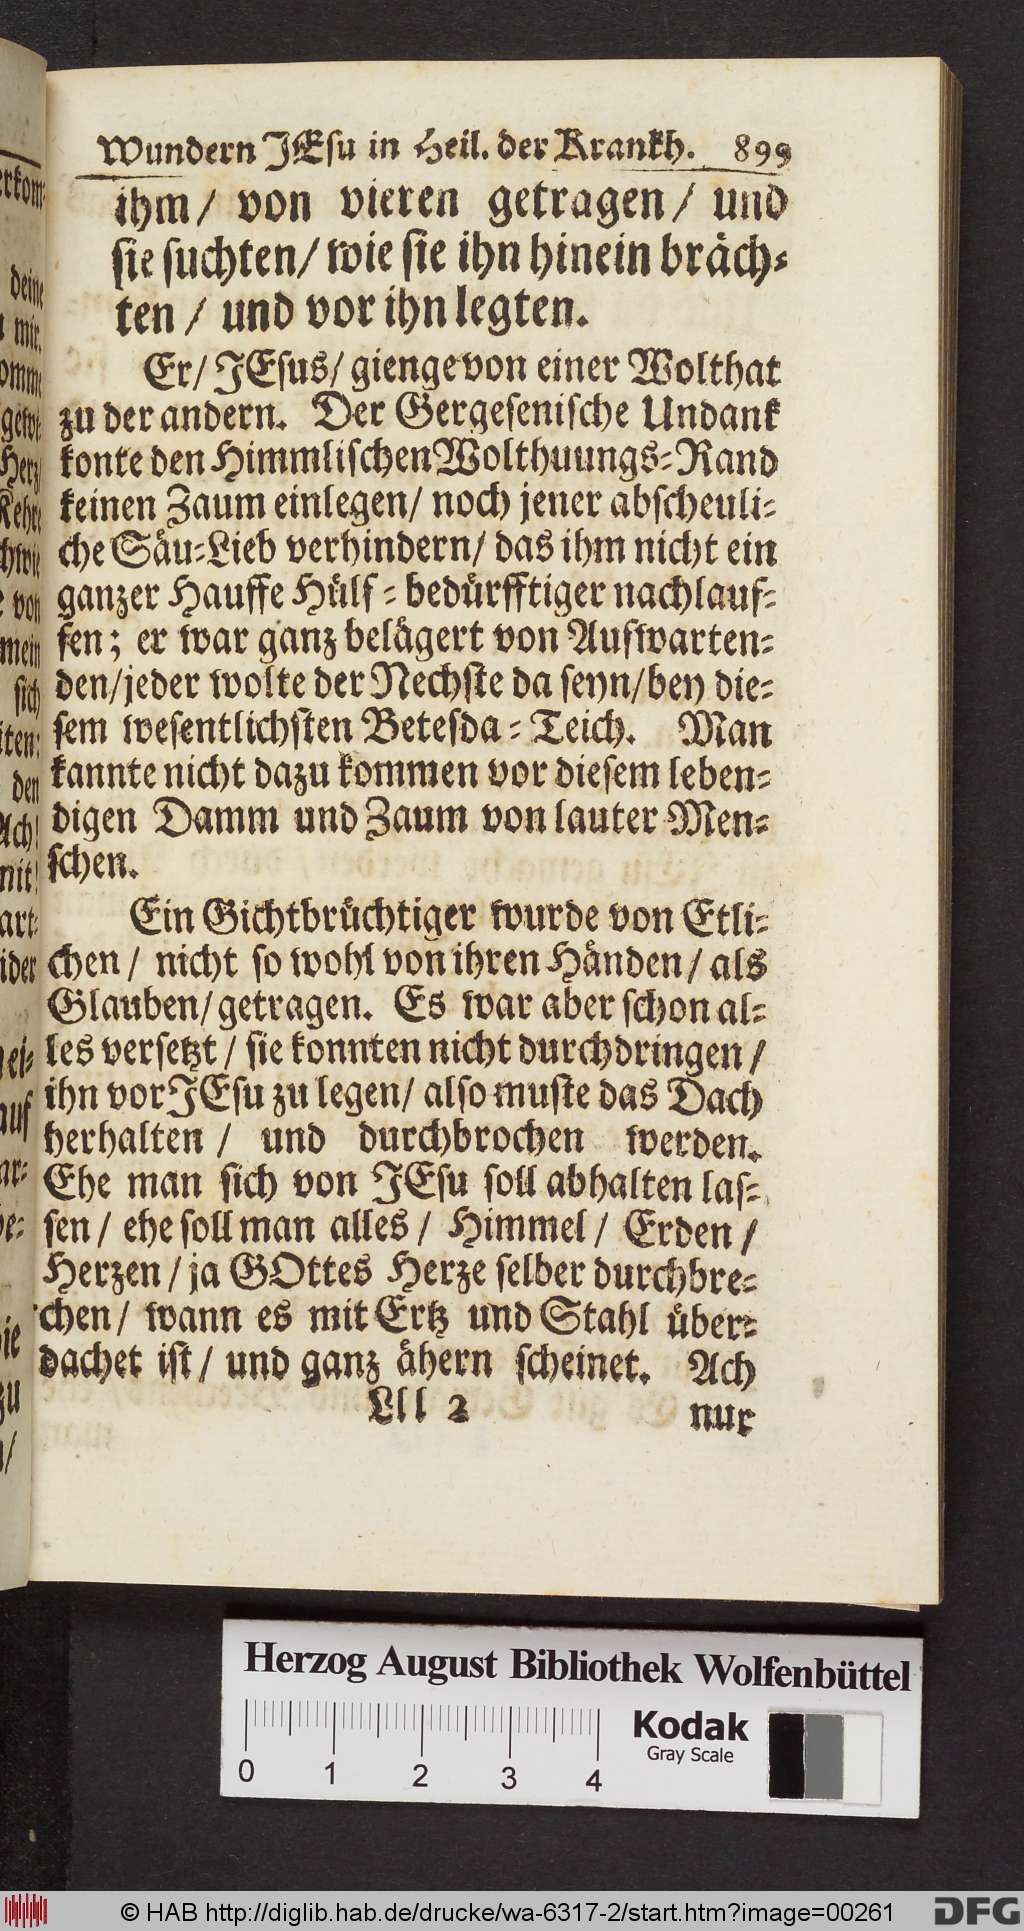 Wundern JEsu in Heil. der Krankh. 899
ihm / von vieren getragen / und
sie suchten / wie sie ihn hinein bräch-
ten / und vor ihn legten.
Er / JEsus / gienge von einer Wolthat
zu der andern. Der Gergesenische Undank
konte den Himmlischen Wolthuungs-Rand
keinen Zaum einlegen / noch jener abscheuli-
che Säu-Lieb verhindern / das ihm nicht ein
ganzer Hauffe Hülf-bedürfftiger nachlauf-
fen; er war ganz belägert von Aufwarten-
den / jeder wolte der Nechste da seyn / bey die-
sem wesentlichsten Betesda-Teich. Man
kannte nicht dazu kommen vor diesem leben-
digen Damm und Zaum von lauter Men-
schen.
Ein Gichtbrüchtiger wurde von Etli-
chen / nicht so wohl von ihren Händen / als
Glauben / getragen. Es war aber schon al-
les versetzt / sie konnten nicht durchdringen /
ihn vor JEsu zu legen / also muste das Dach
herhalten / und durchbrochen werden.
Ehe man sich von JEsu soll abhalten las-
sen / ehe soll man alles / Himmel / Erden /
Herzen / ja GOttes Herze selber durchbre-
chen / wann es mit Ertz und Stahl über-
dachet ist / und ganz ähern scheinet. Ach
Lll 2 nur
Herzog August Bibliothek Wolfenbüttel
Kodak
Gray Scale
0 1 2 3 4
© HAB http://diglib.hab.de/drucke/wa-6317-2/start.htm?image=00261
DFG